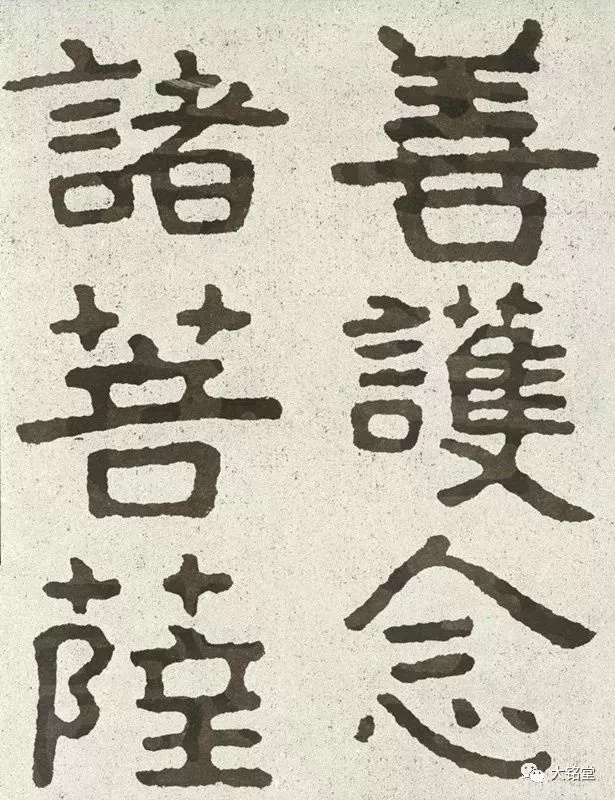 善護念
諸菩薩
大铭堂